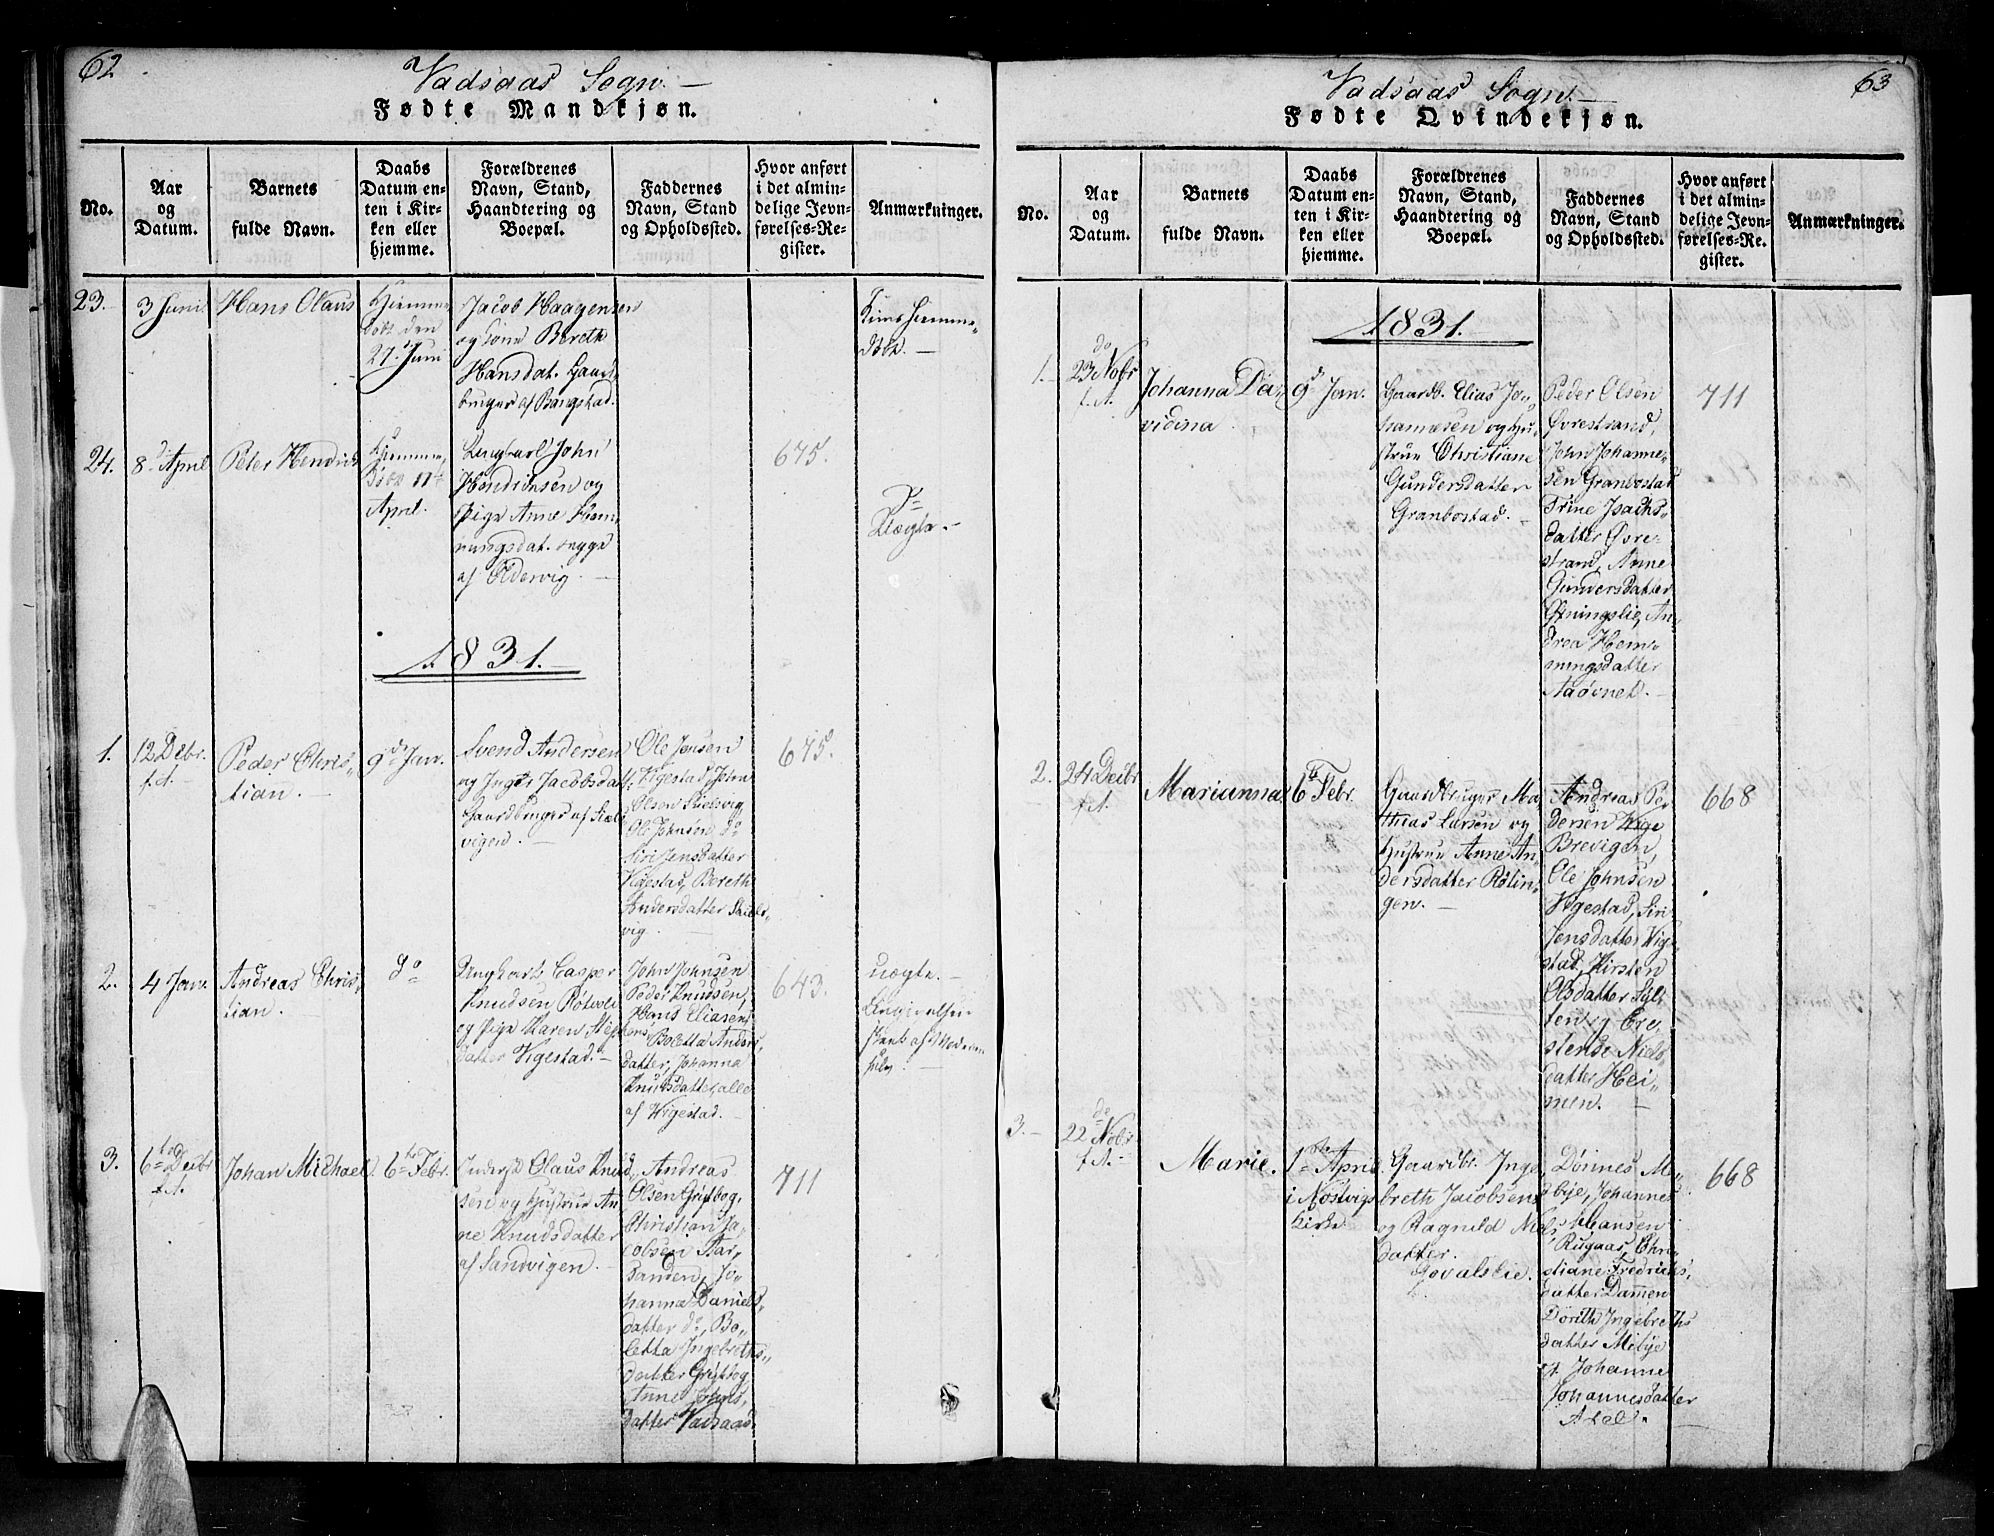 62
Vadsaas Sogn.
Fødte Mandkjøn.
No.
Aar
og
Datum.
Barnets
fulde Navn.
Daabs
Datum en-
ten i Kir-
ken eller
hjemme.
Forældrenes
Navn, Stand,
Haandtering og
Boepæl.
Faddernes
Navn, Stand
og Opholdssted.
Hvor anført
i det almin-
delige Jevn-
førelses-Re-
gister.
Anmærkninger.
23.
3 Juni
Hans Olaus
Hjemme
døbt den
27. Juni
Jacob Haagensen
og Kone Bereth
Hansdat. Gaard
bruger af Bangstad.
Hiemme
døbt.
24.
8 April
Peter Hendrich
Hjemme
døbt 11te
April.
Ungkarl John
Hendriksen og
Pige Anne Hem
ningsdat.
af Oldervig.
675.
Uægte.
1831.
1.
12 Debr.
f. A.
Peder Chris
tian.
9 Jan.
Svend Andersen
og Inger Jacobsdatt.
Gaardbruger af Skiels
vigen.
Ole Jensen
Vigestad, John
Olsen Skielsvig
Ole Johnsen do
Siri Jensdatter
Vigestad, Bereth
Andersdatter Skiels
vig.
675.
2.
4 Jan.
Andreas Chris
tian.
do
Ungkarl Casper
Knudsen Rølvoli
og Pige Karen
datter Vigestad.
John Johnsen
Peder Knudsen,
Hans Eliasen
Boletta Anders
datter, Johanna
Knudsdatter, alle
af Vigestad.
643.
uægte.
Angivelsen
skeet af Moderen
selv.
3.
6te Debr
f. A.
Johan Michael
6te Febr.
Olaus Knud
sen og Hustrue An
ne Knudsdatter
af Sandvigen.
Andreas
Olsen Grytbog,
Christian Ja
cobsen Har
sanden, Jo
hanna Daniels
datter do, Bo
letta Ingebreths
datter Grytbog
Anne Johns
datter Vadsaas.
711
63
Vadsaas Sogn.
Fødte Qvindekjøn.
No.
Aar
og
Datum.
Barnets
fulde Navn.
Daabs
Datum en-
ten i Kir-
ken eller
hjemme.
Forældrenes
Navn, Stand,
Haandtering og
Boepæl.
Faddernes
Navn, Stand
og Opholdssted.
Hvor anført
i det almin-
delige Jevn-
førelses-Re-
gister.
Anmærkninger.
1831.
1.
23 Nobr
f. A.
Johanna Da
vidina
9 Jan.
Gaardb. Elias Jo
hannesen og Hu
strue Christiane
Gundersdatter
Granbostad.
Peder Olsen
Øvrestrand,
John Johanne
sen Granbostad
Trine Isachs
datter Øvre
strand, Anne
Gundersdatter
Ørningslie, An
drea Hem
ningsdatter
Aaøvnet.
711
2.
24 Debr
f. A.
Marianna
6te Febr.
Gaardbruger Ma
thias Larsen og
Hustrue Anne An
dersdatter Rølin
gen.
Andreas Pe
dersen
Brevigen,
Ole Johnsen
Vigestad, Siri
Jensdatter Vig
stad, Kirsten
Olsdatter Syl
ten og Ere
stende Niels
datter Hei
men.
668
3.
22 Nobr
f. A.
Marie.
1ste April
i Nordvigs
Kirke
Gaardbr. Inge
breth Jacobsen
og Ragnild Niels
datter.
Govalslie.
Dønnes Me
bye, Johannes
Hansen
Rugaas, Chri
stiane Fredrichs
datter Dammen
Dorith Ingebreths
datter Mebye
Johanne
Johannesdatter
668